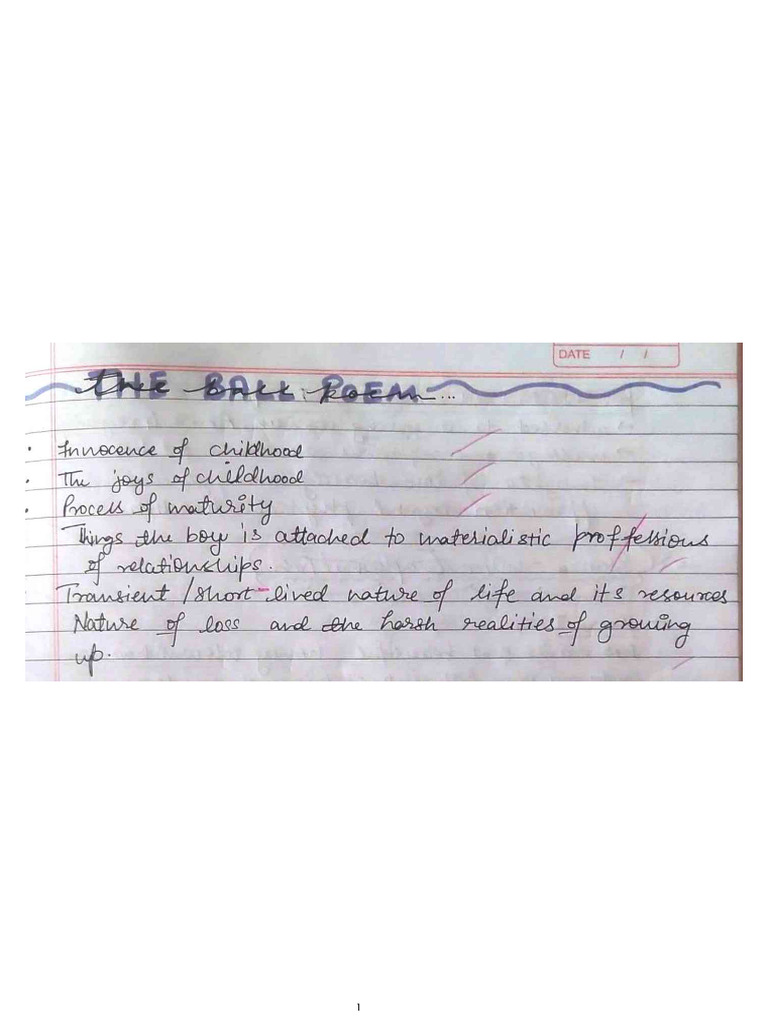 DATE / /
THE BALL POEM...
. Innocence of childhood
. The joys of childhood
. Process of maturity
Things the boy is attached to materialistic proffessious
of relationships.
Transient/short-lived nature of life and its resources
Nature of loss and the harsh realities of growing
up.
1